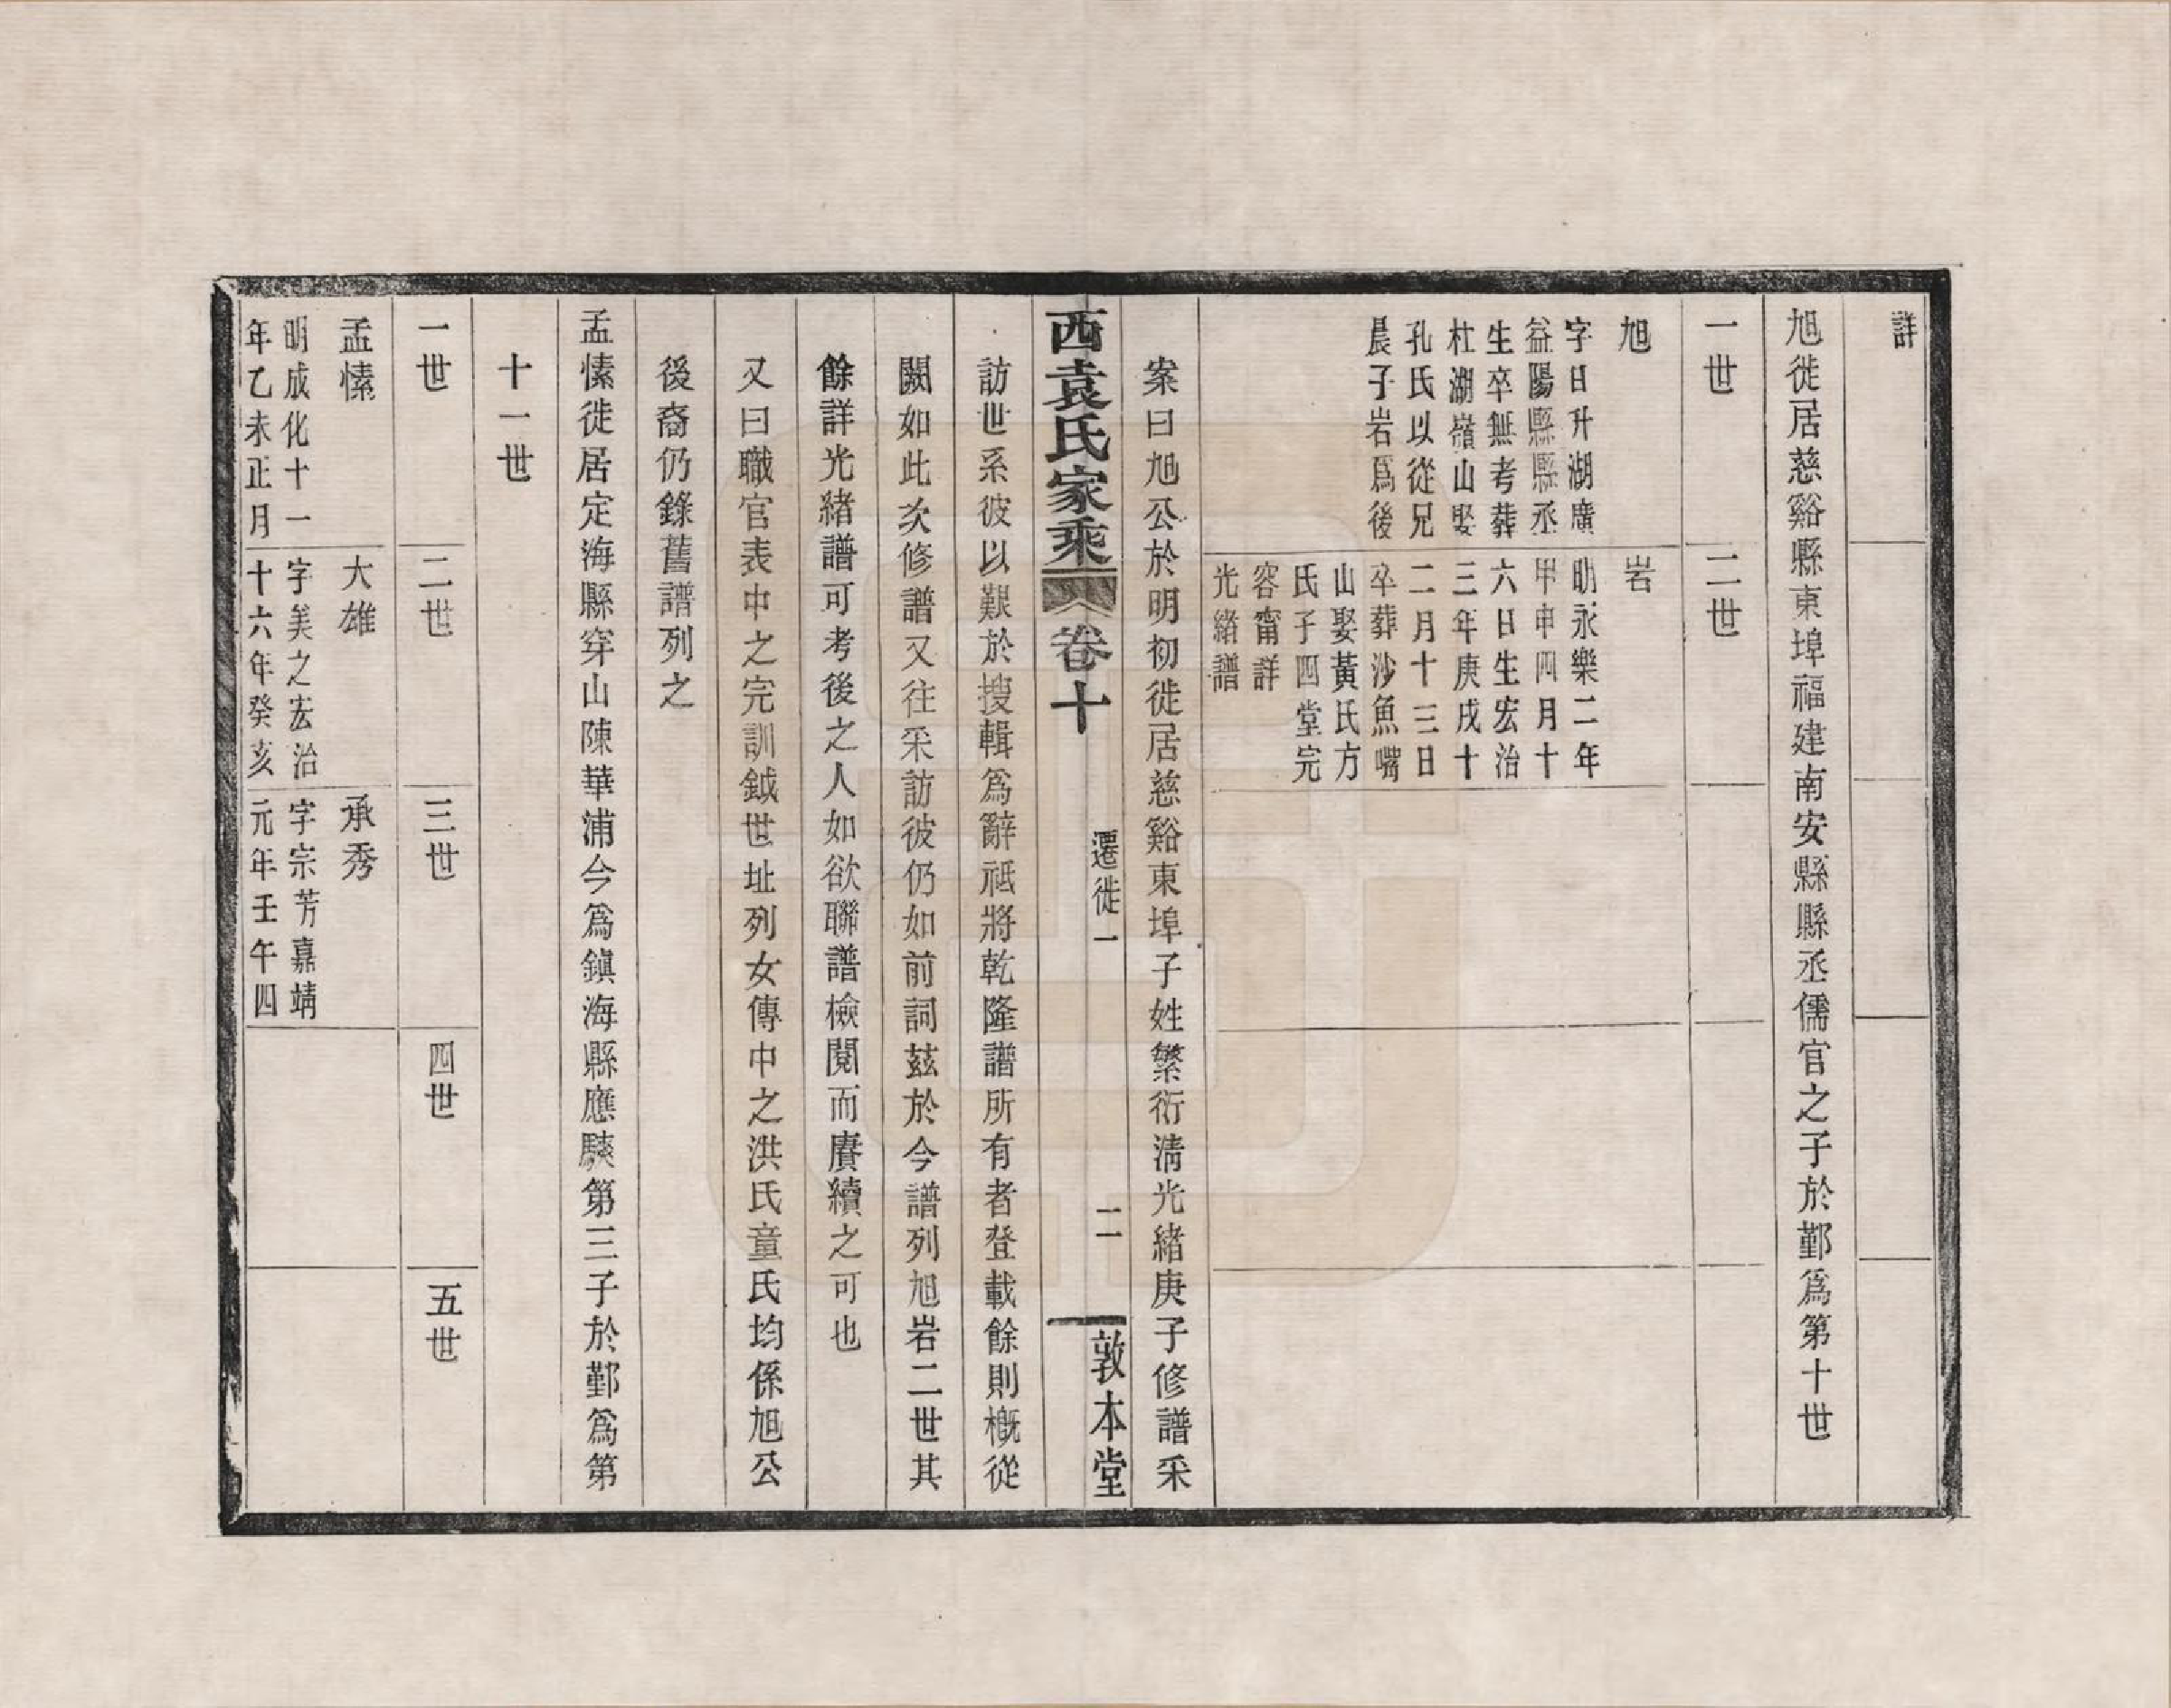 詳
旭徙居慈谿縣東埠福建南安縣縣丞儒官之子於鄞爲第十世
一世
二世
旭
字日升湖廣
益陽縣縣丞
生卒無考葬
杜湖嶺山娶
孔氏以從兄
晨子岩爲後
岩
明永樂二年
甲申四月十
六日生宏治
三年庚戌十
二月十三日
卒葬沙魚嘴
山娶黃氏方
氏子四堂完
容甯詳
光緒譜
案曰旭公於明初徙居慈谿東埠子姓繁衍清光緒庚子修譜采
西袁氏家乘 卷十 遷徙一 二 敦本堂
訪世系彼以艱於搜輯爲辭祗將乾隆譜所有者登載餘則槪從
闕如此次修譜又往采訪彼仍如前詞茲於今譜列旭岩二世其
餘詳光緒譜可考後之人如欲聯譜檢閱而賡續之可也
又曰職官表中之完訓鉞世址列女傳中之洪氏童氏均係旭公
後裔仍錄舊譜列之
孟愫徙居定海縣穿山陳華浦今爲鎮海縣應驥第三子於鄞爲第
十一世
一世
二世
三世
四世
五世
孟愫
明成化十一
年乙未正月
大雄
字美之宏治
十六年癸亥
承秀
字宗芳嘉靖
元年壬午四